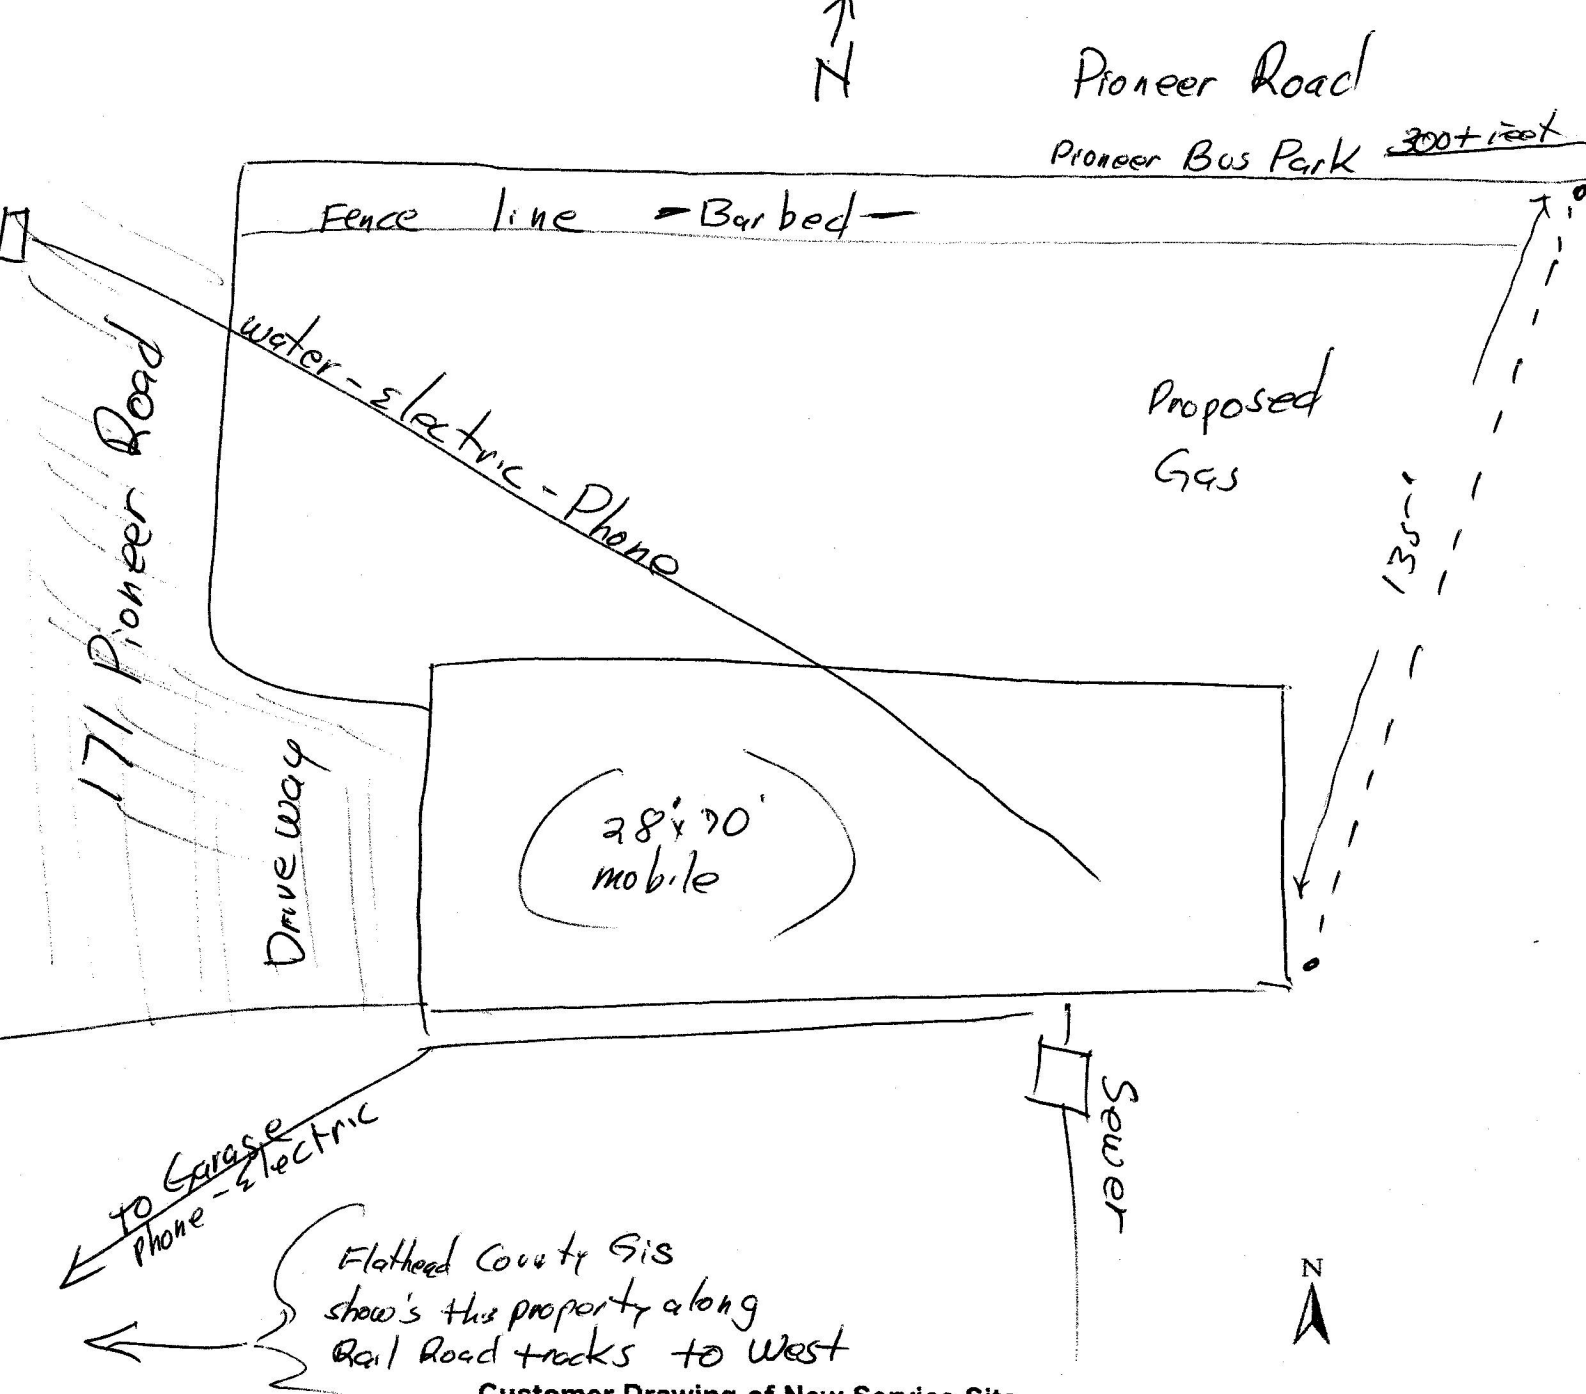 N
Pioneer Road
Pioneer Bus Park 300+ feet
Fence line - Barbed -
water - Electric - Phone
171 Pioneer Road
Proposed
Gas
135'
Driveway
28' x 70'
mobile
Sewer
To Garage
phone - Electric
Flathead County Gis
show's this property along
Rail Road tracks to West
N
Customer Drawing of New Service Site